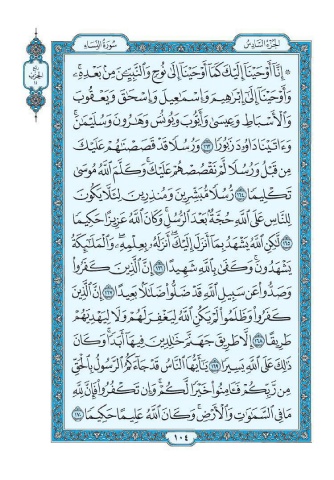 الجزء السادس
سورة النساء
ربع الحزب ١١
۞ إِنَّا أَوْحَيْنَا إِلَيْكَ كَمَا أَوْحَيْنَا إِلَىٰ نُوحٍ وَالنَّبِيِّينَ مِنْ بَعْدِهِ ۚ
وَأَوْحَيْنَا إِلَىٰ إِبْرَاهِيمَ وَإِسْمَاعِيلَ وَإِسْحَاقَ وَيَعْقُوبَ
وَالْأَسْبَاطِ وَعِيسَىٰ وَأَيُّوبَ وَيُونُسَ وَهَارُونَ وَسُلَيْمَانَ ۚ
وَءَاتَيْنَا دَاوُودَ زَبُورًا ١٦٣ وَرُسُلًا قَدْ قَصَصْنَاهُمْ عَلَيْكَ
مِنْ قَبْلُ وَرُسُلًا لَمْ نَقْصُصْهُمْ عَلَيْكَ ۚ وَكَلَّمَ اللَّهُ مُوسَىٰ
تَكْلِيمًا ١٦٤ رُسُلًا مُبَشِّرِينَ وَمُنْذِرِينَ لِئَلَّا يَكُونَ
لِلنَّاسِ عَلَى اللَّهِ حُجَّةٌ بَعْدَ الرُّسُلِ ۚ وَكَانَ اللَّهُ عَزِيزًا حَكِيمًا
١٦٥ لَٰكِنِ اللَّهُ يَشْهَدُ بِمَا أَنْزَلَ إِلَيْكَ ۖ أَنْزَلَهُ بِعِلْمِهِ ۖ وَالْمَلَائِكَةُ
يَشْهَدُونَ ۚ وَكَفَىٰ بِاللَّهِ شَهِيدًا ١٦٦ إِنَّ الَّذِينَ كَفَرُوا
وَصَدُّوا عَنْ سَبِيلِ اللَّهِ قَدْ ضَلُّوا ضَلَالًا بَعِيدًا ١٦٧ إِنَّ الَّذِينَ
كَفَرُوا وَظَلَمُوا لَمْ يَكُنِ اللَّهُ لِيَغْفِرَ لَهُمْ وَلَا لِيَهْدِيَهُمْ
طَرِيقًا ١٦٨ إِلَّا طَرِيقَ جَهَنَّمَ خَالِدِينَ فِيهَا أَبَدًا ۚ وَكَانَ
ذَٰلِكَ عَلَى اللَّهِ يَسِيرًا ١٦٩ يَا أَيُّهَا النَّاسُ قَدْ جَاءَكُمُ الرَّسُولُ بِالْحَقِّ
مِنْ رَبِّكُمْ فَآمِنُوا خَيْرًا لَكُمْ ۚ وَإِنْ تَكْفُرُوا فَإِنَّ لِلَّهِ
مَا فِي السَّمَاوَاتِ وَالْأَرْضِ ۚ وَكَانَ اللَّهُ عَلِيمًا حَكِيمًا ١٧٠
١٠٤